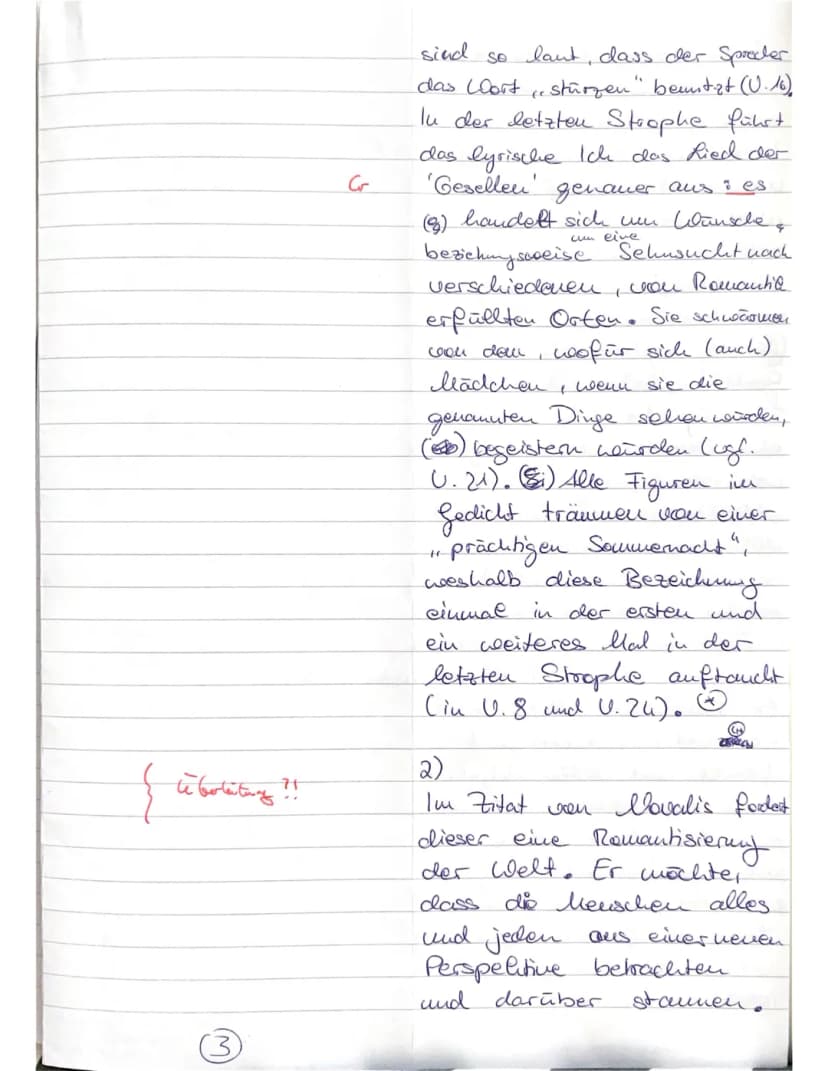 sind so laut, dass der Sprecher
das Wort „stürzen" benutzt (V. 16).
In der letzten Strophe führt
das lyrische Ich das Lied der
Gr 'Gesellen' genauer aus: es
handelt sich um Wünsche,
um eine
beziehungsweise Sehnsucht nach
verschiedenen, von Romantik
erfüllten Orten. Sie schwärmen
von dem, wofür sich (auch)
Mädchen, wenn sie die
genannten Dinge sehen würden,
begeistern würden (vgl.
V. 21). Alle Figuren im
Gedicht träumen von einer
„prächtigen Sommernacht",
weshalb diese Bezeichnung
einmal in der ersten und
ein weiteres Mal in der
letzten Strophe auftaucht
(in V. 8 und V. 24). (*)
2)
Überleitung ?!
Im Zitat von Novalis fordert
dieser eine Romantisierung
der Welt. Er möchte,
dass die Menschen alles
und jeden aus einer neuen
Perspektive betrachten
und darüber staunen.
3